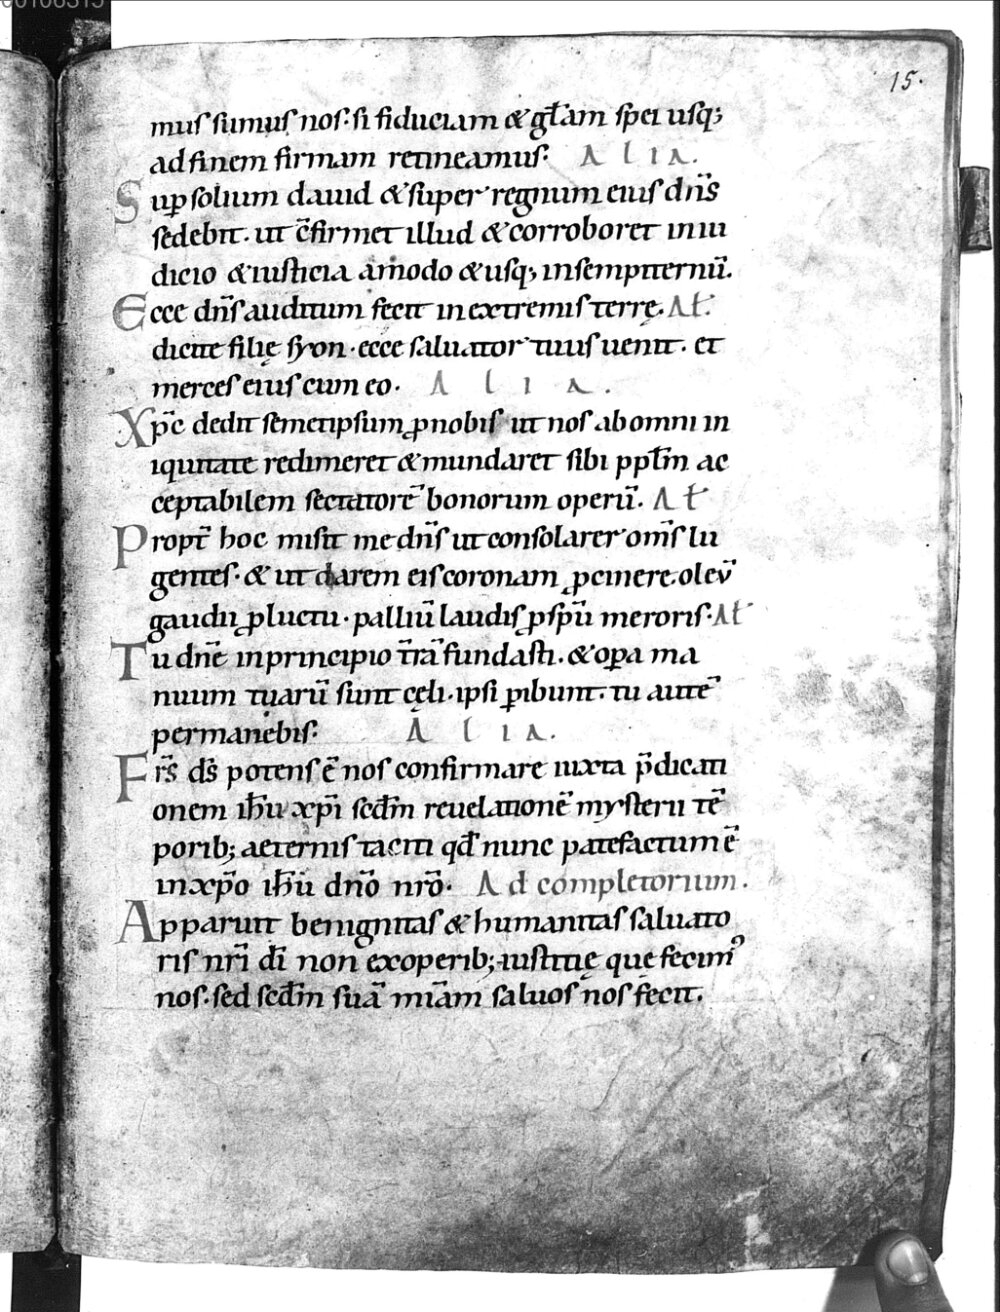 15.
mus sumus nos. si fiduciam & gl̅am spei usq;
ad finem firmam retineamus. ALIA.
Sup̱ solium dauid & super regnum eius dn̅s
sedebit. ut c̅firmet illud & corroboret in iu
dicio & iusticia amodo & usq; insempiternu̅.
Ecce dn̅s auditum fecit in extremis terrę. Al̅.
dicite filię syon. ecce saluator tuus uenit. et
merces eius cum eo. ALIA.
Xp̅c dedit semetipsum ꝓ nobis ut nos ab omni in
iquitate redimeret & mundaret sibi ppl̅m ac
ceptabilem sectatore̅ bonorum operu̅. Al̅
Propt̅ hoc misit me dn̅s ut consolarer om̅s lu
gentes. & ut darem eis coronam ꝓ cinere. oleu̅
gaudii ꝓ luctu. palliu̅ laudis ꝓ sp̅u meroris. Al̅
Tu dn̅e in principio t̅ra̅ fundasti. & oꝑa ma
nuum tuaru̅ sunt cęli. ipsi ꝑibunt. tu aute̅
permanebis. ALIA.
Fr̅s d̅s potens e̅ nos confirmare iuxta p̅dicati
onem ih̅u xp̅i scd̅m reuelatione̅ mysterii te̅
porib; aeternis taciti qd̅ nunc patefactum e̅
in xp̅o ih̅u dn̅o nr̅o. Ad completorium.
Apparuit benignitas & humanitas saluato
ris nr̅i di̅ non ex operib; iustitię que fecimꝰ
nos. sed scd̅m sua̅ mi̅am saluos nos fecit.